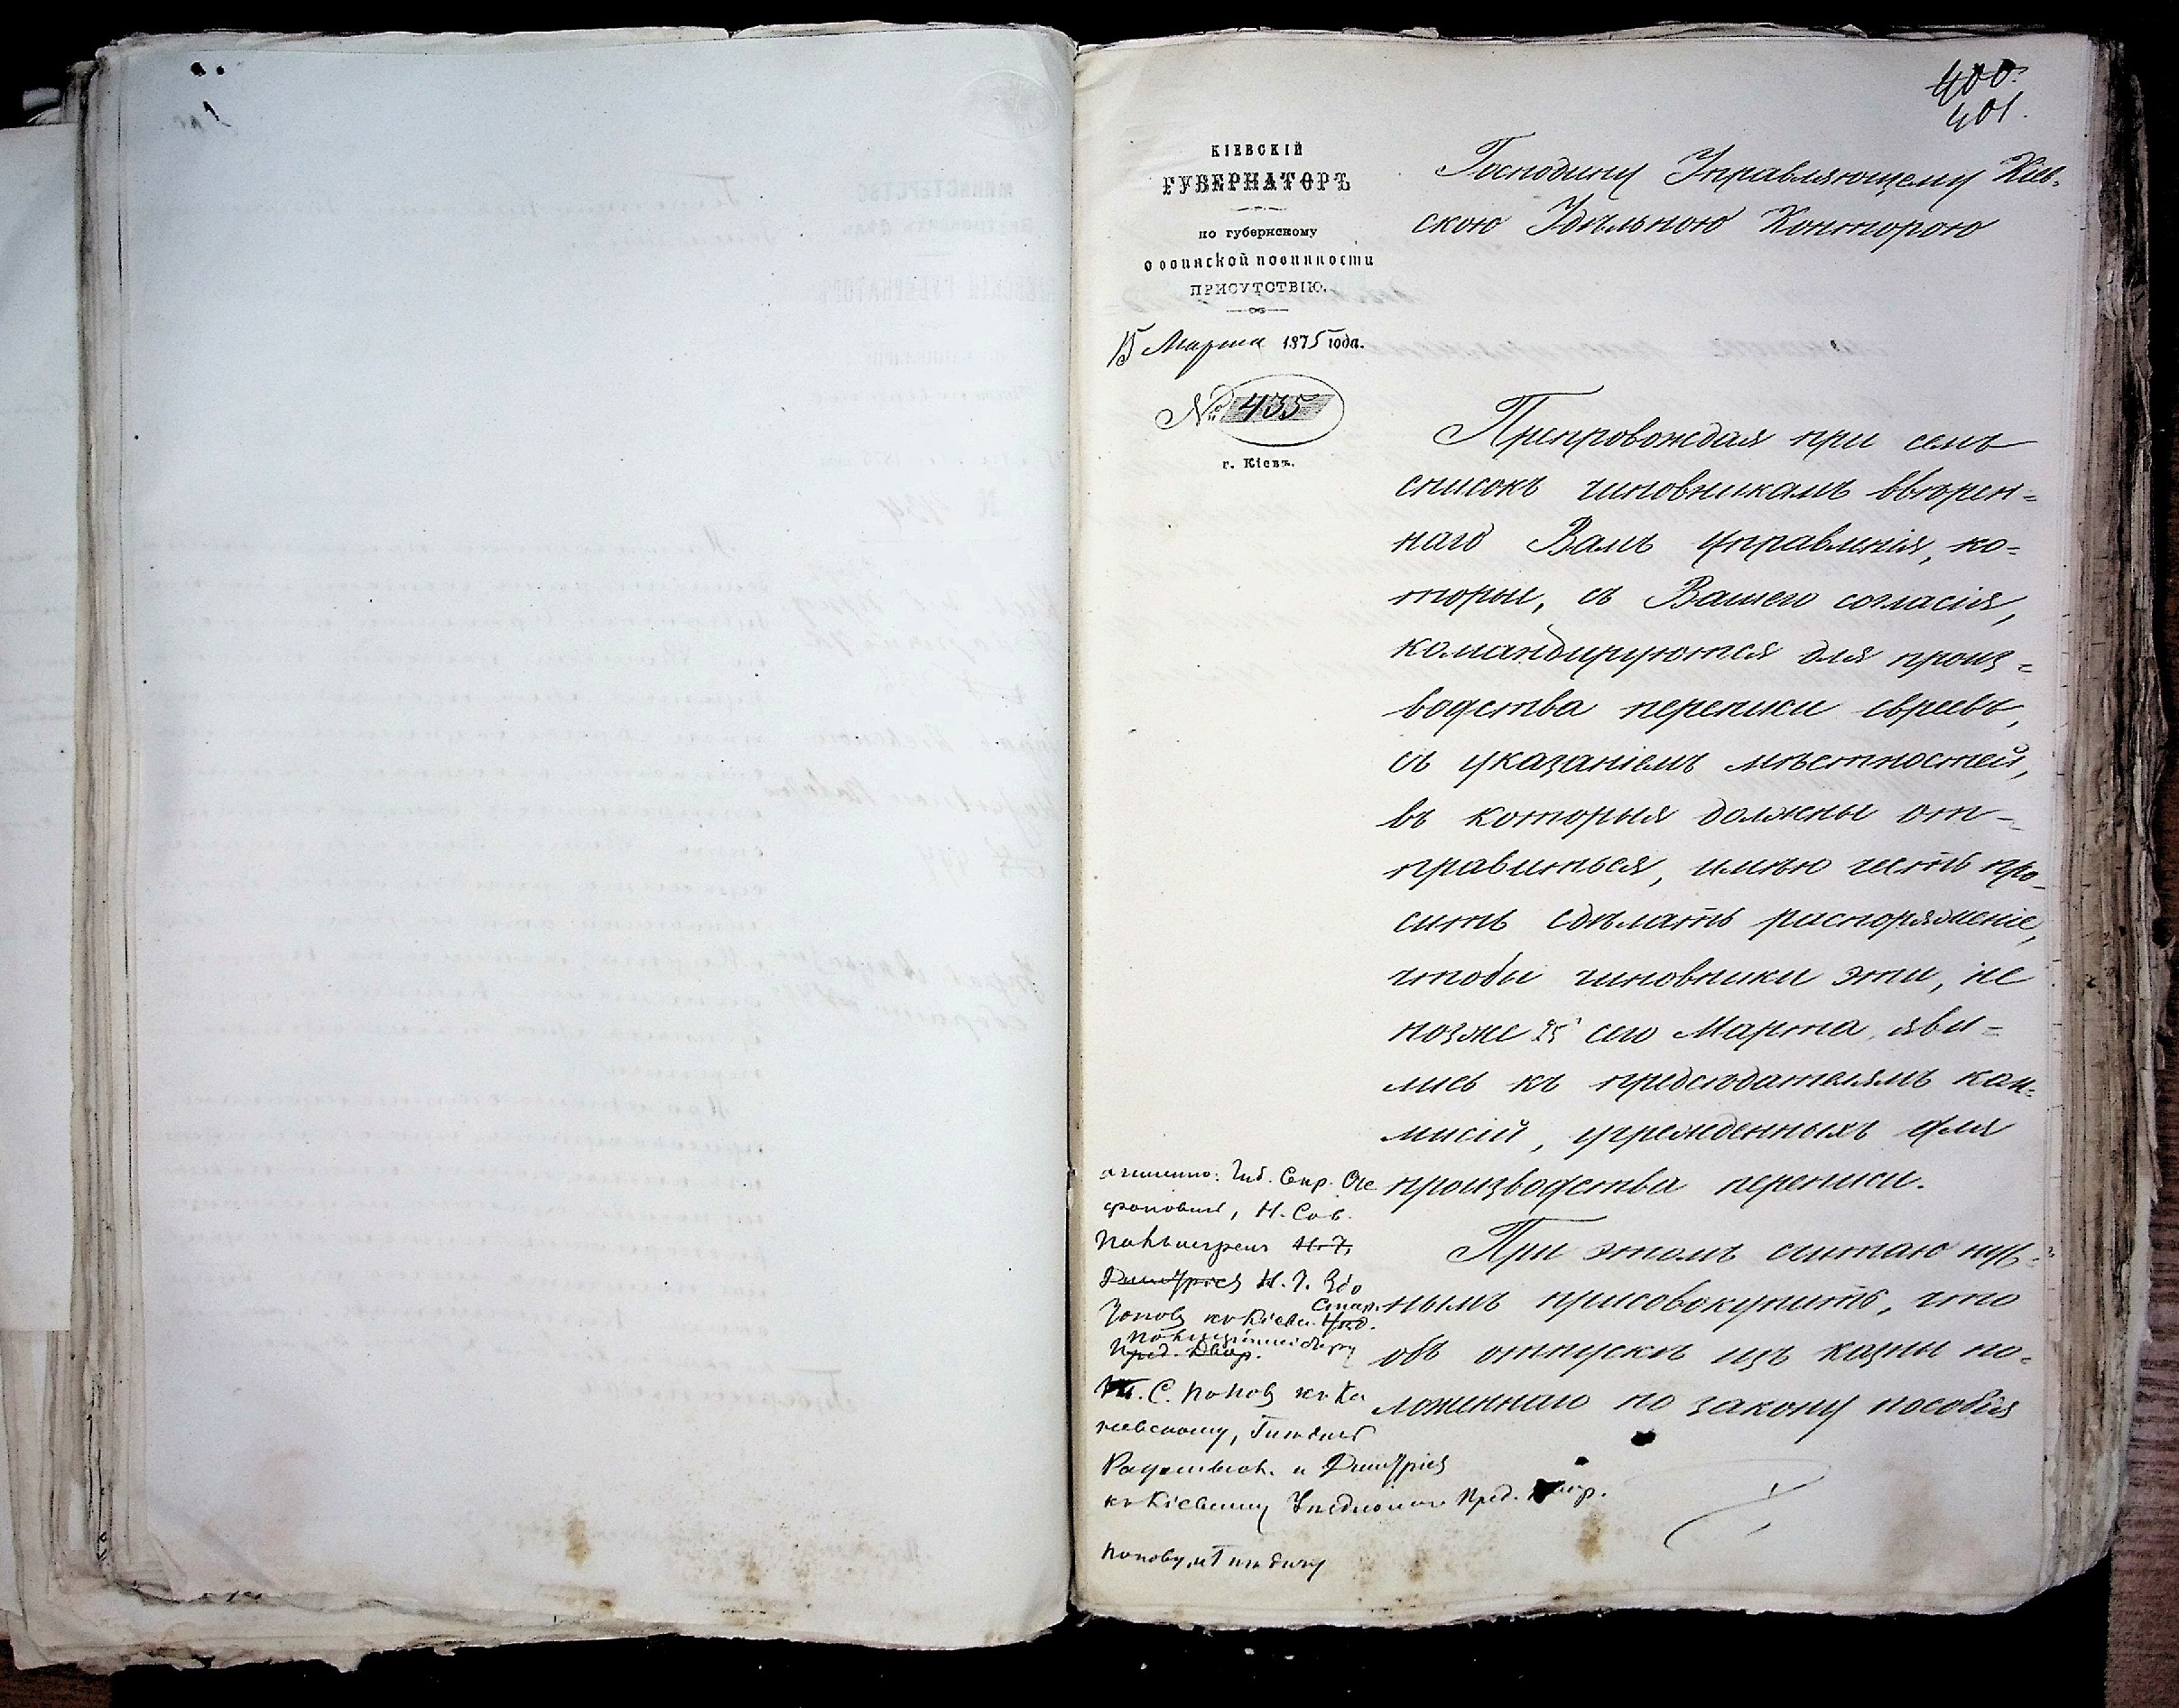 400.
401.
КІЕВСКІЙ
ГУБЕРНАТОРЪ
по губернскому
о воинской повинности
ПРИСУТСТВІЮ.
15 Марта 1875 года.
№ 435
г. Кіевъ.
Господину Управляющему Кіев-
скою Удѣльною Конторою
Препровождая при семъ
списокъ чиновникамъ ввѣрен-
наго Вамъ управленія, ко-
торые, съ Вашего согласія,
командируются для произ-
водства переписи евреевъ,
съ указаніемъ мѣстностей,
въ которыя должны от-
правиться, имѣю честь про-
сить сдѣлать распоряженіе,
чтобы чиновники эти, не
позже 25 сего Марта, яви-
лись къ предсѣдателямъ ком-
мисій, учрежденныхъ для
производства переписи.
При этомъ считаю нуж-
нымъ присовокупить, что
объ отпускѣ изъ казны по-
ложеннаго по закону пособія
а именно: Губ. Секр.
Н. Сов.
Н. Г.
Дмитріевъ Н. Г.
Стар.
Пред. Двор.
С. Поповъ къ Ка
невскому,
и Дмитріевъ
къ Кіевскому Уѣздному Пред. Двор.
Попову и